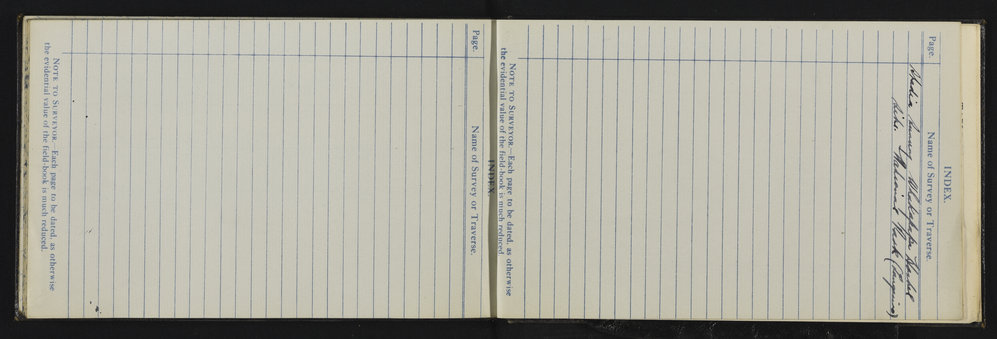 INDEX.
Page. Name of Survey or Traverse.
Stadia Survey
Links. National Park (Tongariro)
NOTE TO SURVEYOR.—Each page to be dated, as otherwise
the evidential value of the field-book is much reduced
INDEX.
Page. Name of Survey or Traverse.
NOTE TO SURVEYOR.—Each page to be dated, as otherwise
the evidential value of the field-book is much reduced.